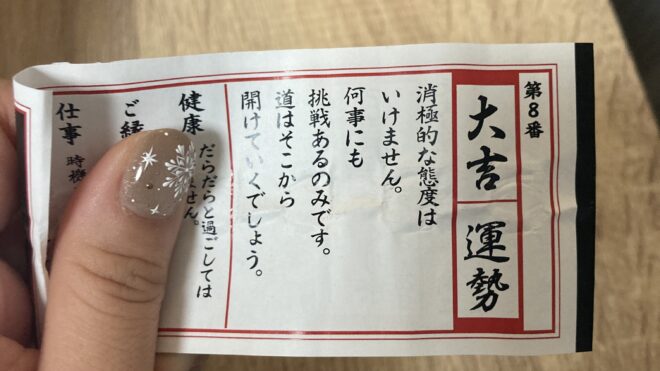 第8番
大吉
運勢
消極的な態度は
いけません。
何事にも
挑戦あるのみです。
道はそこから
開けていくでしょう。
健康
だらだらと過ごしては
ません。
ご縁
仕事
時機